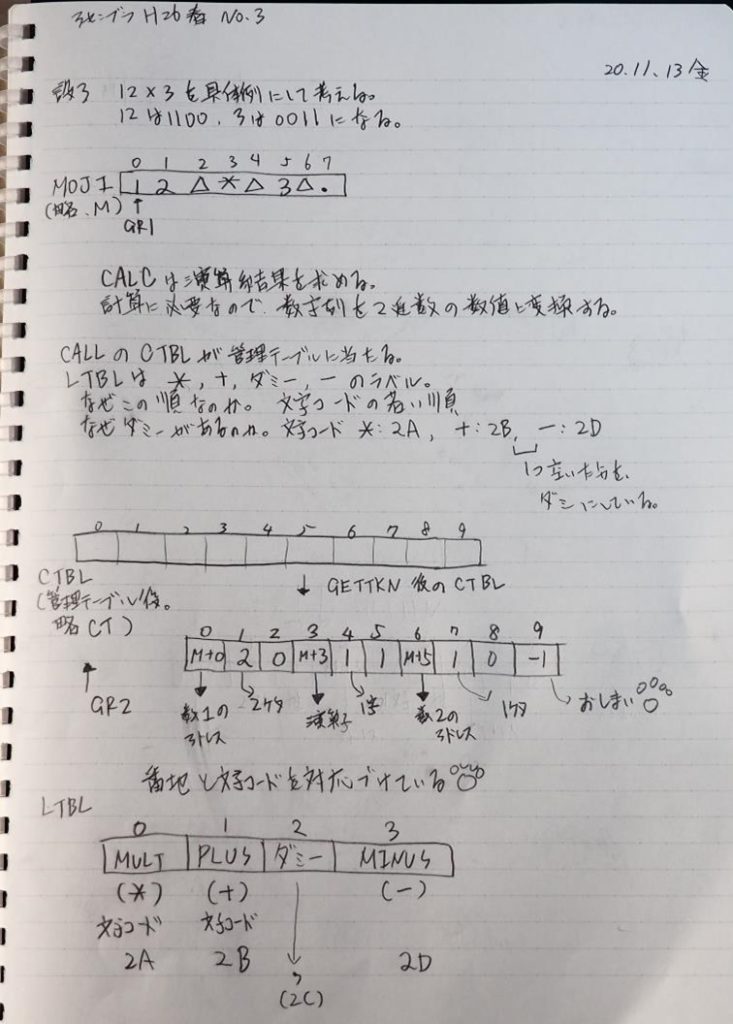 アセンブラ H26春 No.3
20.11.13 金
設3 12×3を具体例にして考える。
12は1100、3は0011になる。
0 1 2 3 4 5 6 7
MOJI 1 2 △ * △ 3 △ .
(略、M) ↑
GR1
CALCは演算結果を求める。
計算に必要なので、数字列を2進数の数値と変換する。
CALLのCTBLが管理テーブルに当たる。
LTBLは *, +, ダミー, − のラベル。
なぜこの順なのか。 文字コードの若い順
なぜダミーがあるのか。文字コード *:2A, +:2B, −:2D
1つ空いた分を、
ダミにしている。
0 1 2 3 4 5 6 7 8 9
CTBL ↓ GETTKN後のCTBL
(管理テーブル後。
略CT)
0 1 2 3 4 5 6 7 8 9
M+0 2 0 M+3 1 1 M+5 1 0 -1
↑
GR2
数1のアドレス 2ケタ 演算子 1字 数2のアドレス 1ケタ おしまい
番地と文字コードを対応づけている
LTBL
0 1 2 3
MULT PLUS ダミー MINUS
(*) (+) (−)
文字コード 文字コード
2A 2B , 2D
(2C)